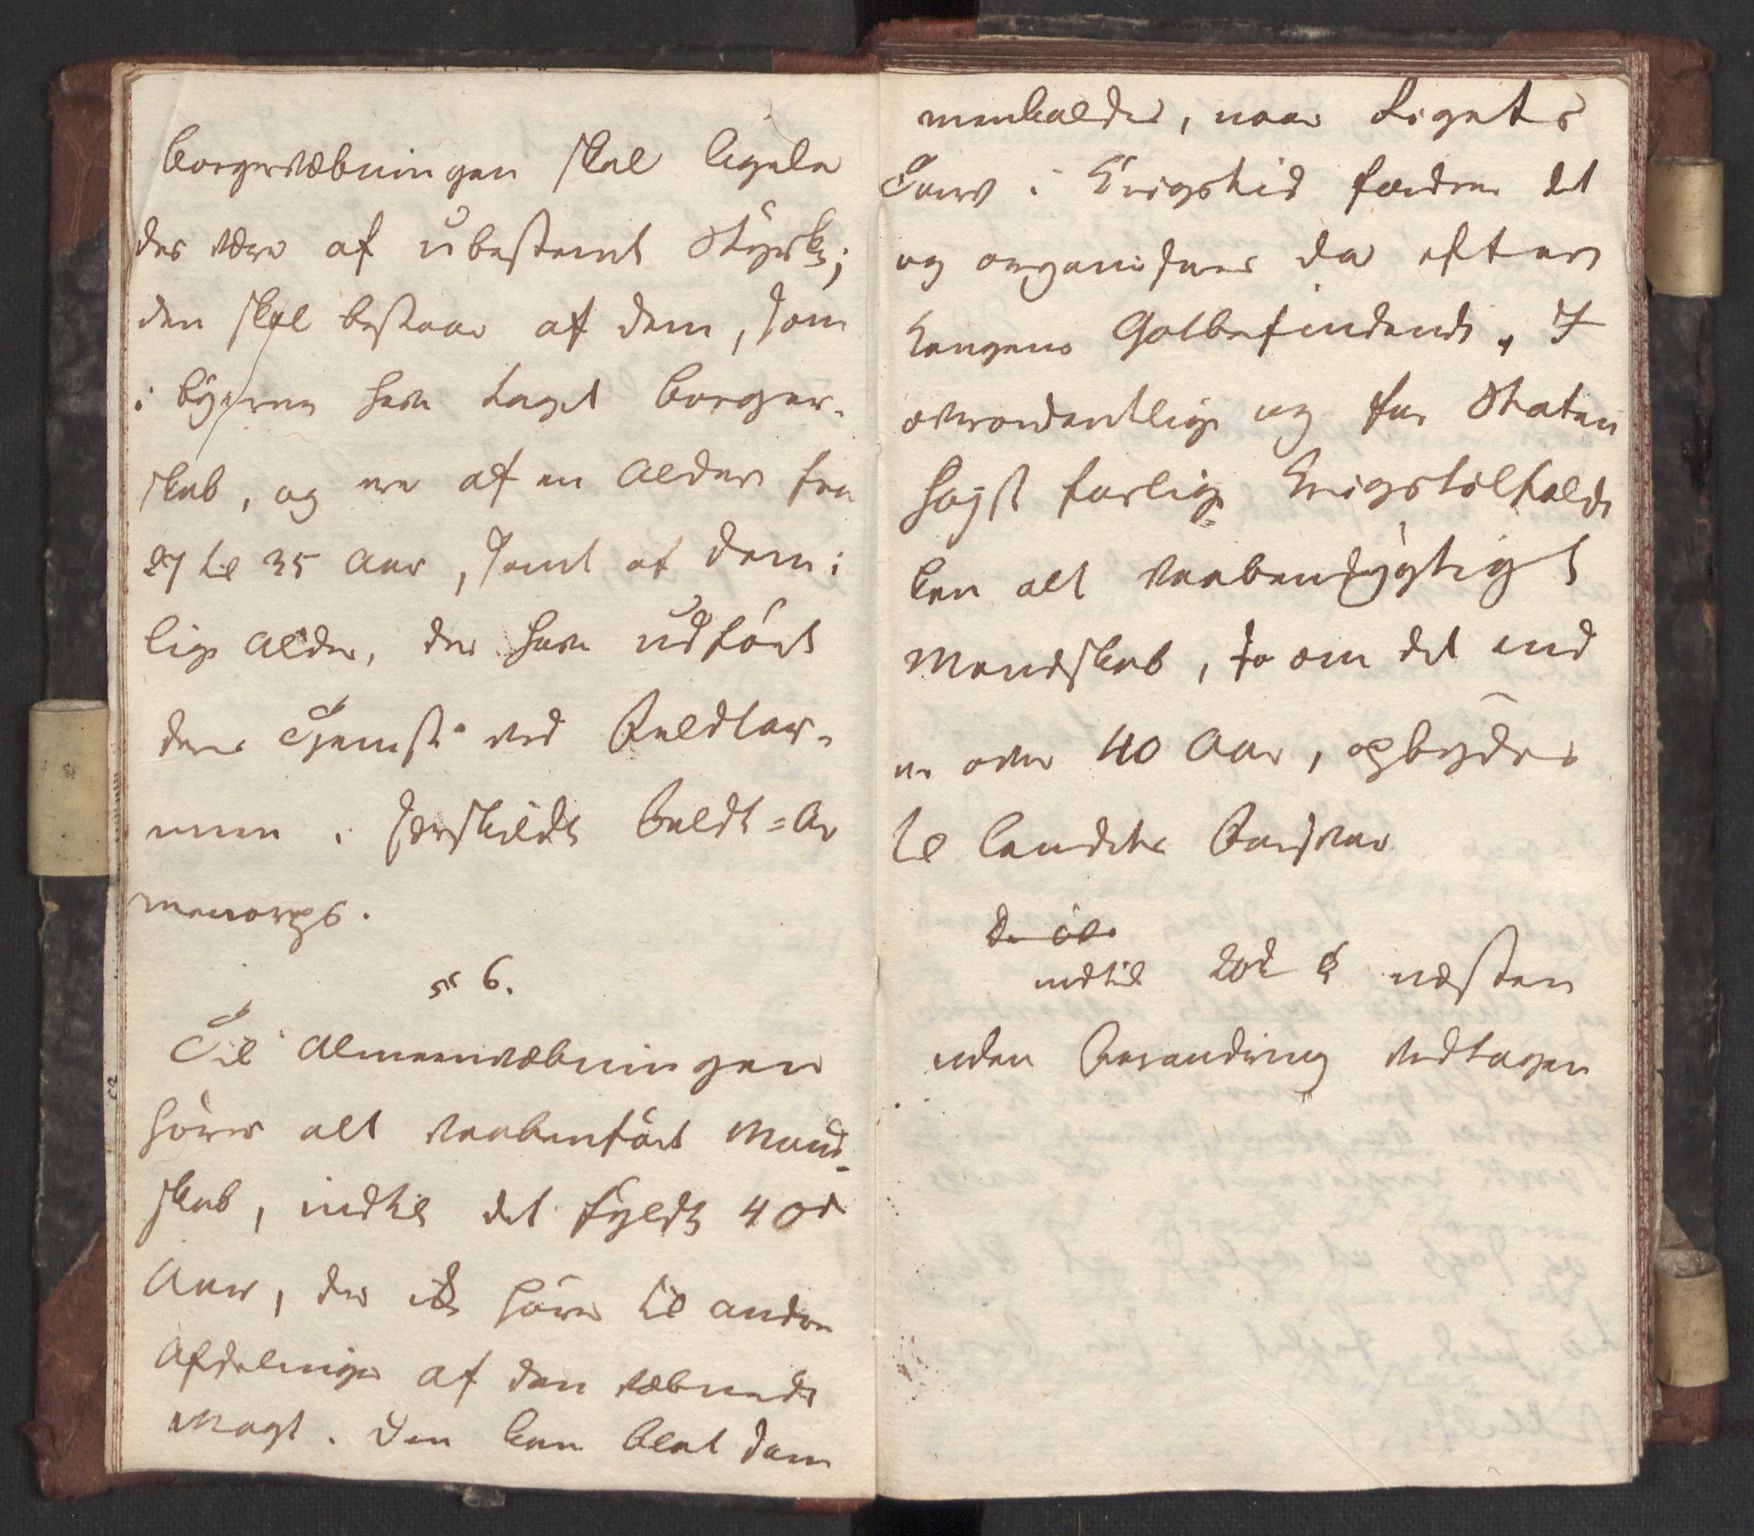 Borgervæbningen skal ligele
des være af ubestemt Styrke;
den skal bestaae af dem, som
i Byerne have taget Borger-
skab, og ere af en Alder fra
27 til 35 Aar, samt af dem i
lige Alder, der have udført
deres Tjeneste ved Feldtar-
meen i særskildte Feldt=Ar
meecorps.
§ 6.
Til Almeenvæbningen
hører alt vaabenført Mand-
skab, indtil det fyldte 40de
Aar, der ikke hører til andre
Afdelinger af den væbnede
Magt. Den kan blot sam
menkaldes, naar Rigets
Tarv i Krigstid fordrer det
og organiseres da efter
Kongens Gotbefindende. I
overordentlige og for Staten
højst farlige Krigstilfælde
kan alt vaabendygtigt
Mandskab, selv om det end
er over 40 Aar, opbydes
til Landets Forsvar
indtil 20de § næsten
uden Forandring vedtagen